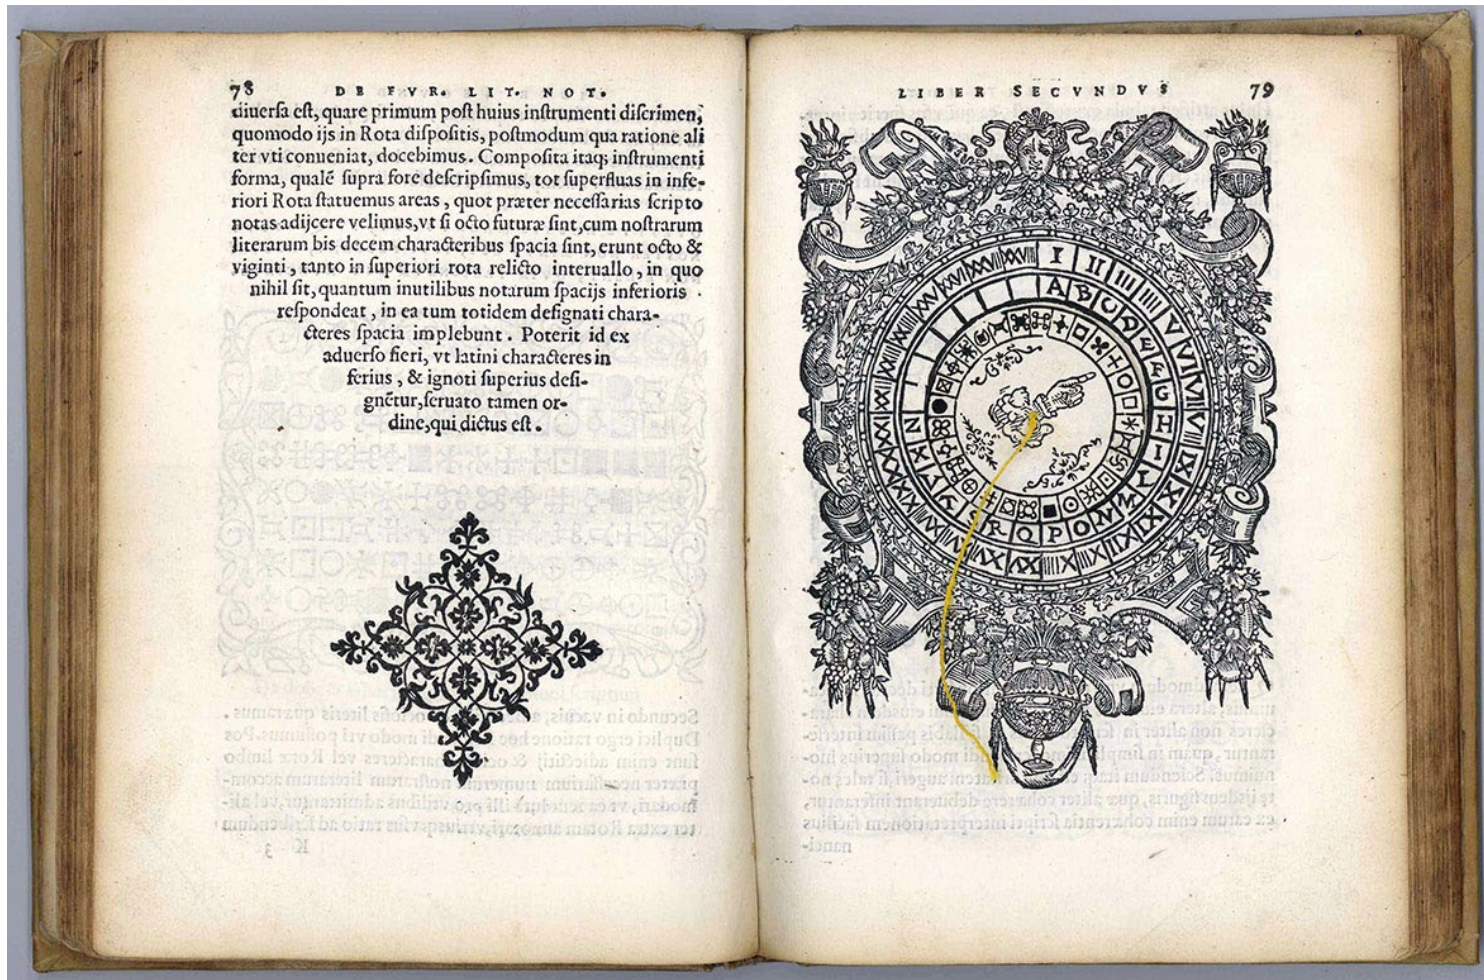 78 DE FVR. LIT. NOT.
diuersa est, quare primum post huius instrumenti discrimen,
quomodo ijs in Rota dispositis, postmodum qua ratione ali
ter vti conueniat, docebimus. Composita itaq; instrumenti
forma, qualẽ supra fore descripsimus, tot superfluas in infe-
riori Rota statuemus areas, quot præter necessarias scripto
notas adijcere velimus, vt si octo futuræ sint, cum nostrarum
literarum bis decem characteribus spacia sint, erunt octo &
viginti, tanto in superiori rota relicto interuallo, in quo
nihil sit, quantum inutilibus notarum spacijs inferioris
respondeat, in ea tum totidem designati chara-
cteres spacia implebunt. Poterit id ex
aduerso fieri, vt latini characteres in
ferius, & ignoti superius desi-
gnẽtur, seruato tamen or-
dine, qui dictus est.
LIBER SECVNDVS 79
I II IIII V VI VII VIII IX X XI XII XIII XV XX XXII XXVII XXVIII
A B C D E F G H I L M N O P Q R S T V X Z